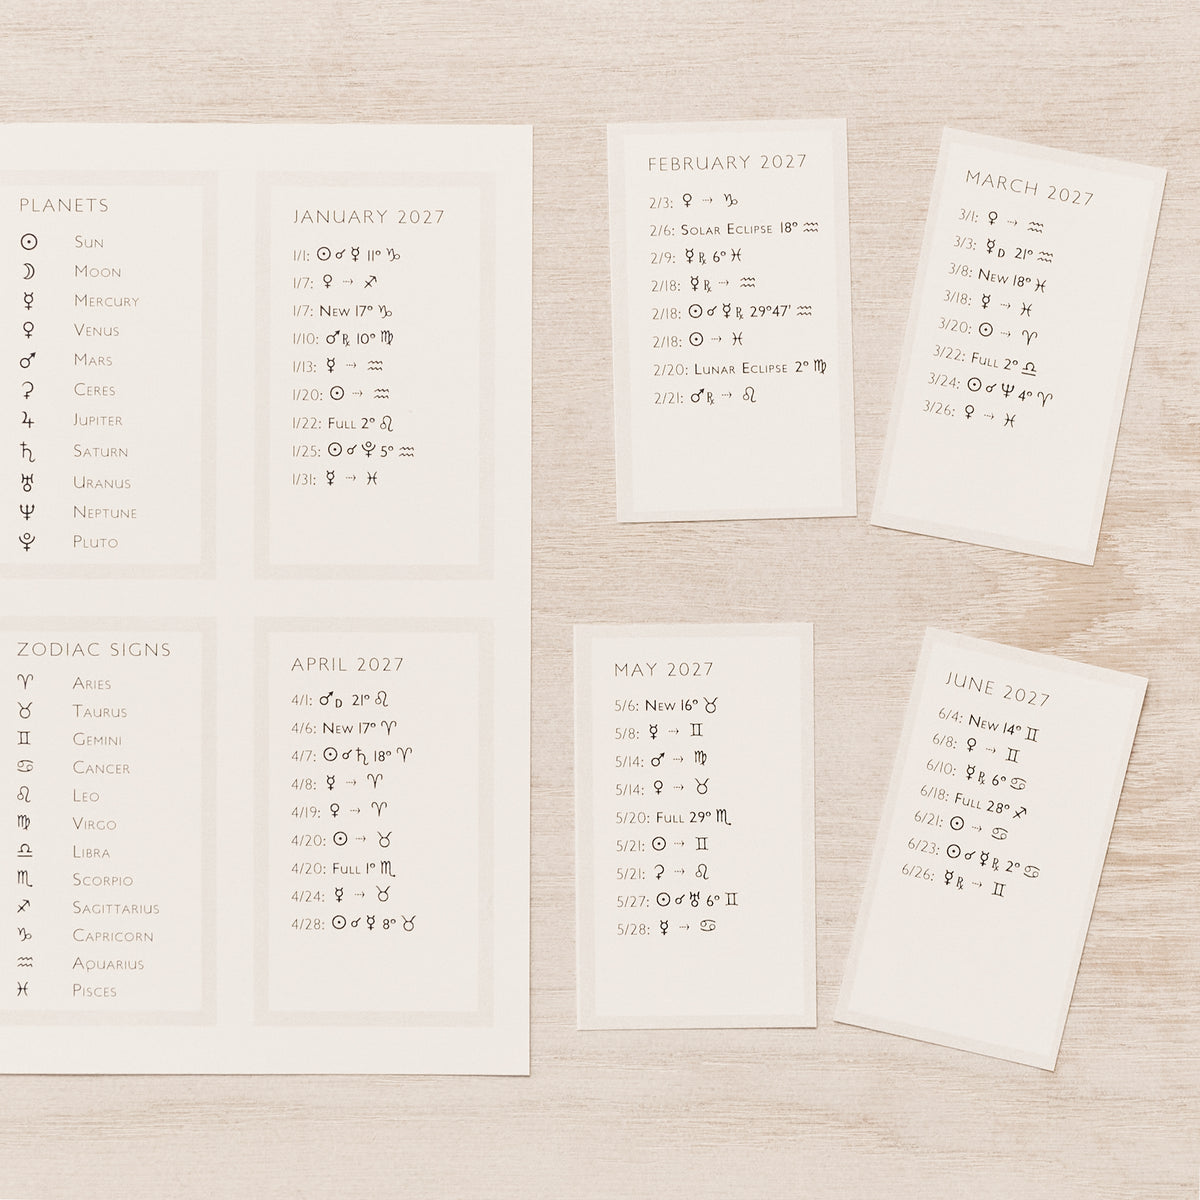 PLANETS
☉ Sun
☽ Moon
☿ Mercury
♀ Venus
♂ Mars
⚳ Ceres
♃ Jupiter
♄ Saturn
♅ Uranus
♆ Neptune
⯓ Pluto
JANUARY 2027
1/1: ☉☌☿ 11° ♑
1/7: ♀ ⇢ ♐
1/7: New 17° ♑
1/10: ♂℞ 10° ♍
1/13: ☿ ⇢ ♒
1/20: ☉ ⇢ ♒
1/22: Full 2° ♌
1/25: ☉☌⯓ 5° ♒
1/31: ☿ ⇢ ♓
FEBRUARY 2027
2/3: ♀ ⇢ ♑
2/6: Solar Eclipse 18° ♒
2/9: ☿℞ 6° ♓
2/18: ☿℞ ⇢ ♒
2/18: ☉☌☿℞ 29°47' ♒
2/18: ☉ ⇢ ♓
2/20: Lunar Eclipse 2° ♍
2/21: ♂℞ ⇢ ♌
MARCH 2027
3/1: ♀ ⇢ ♒
3/3: ☿D 21° ♒
3/8: New 18° ♓
3/18: ☿ ⇢ ♓
3/20: ☉ ⇢ ♈
3/22: Full 2° ♎
3/24: ☉☌♆ 4° ♈
3/26: ♀ ⇢ ♓
ZODIAC SIGNS
♈ Aries
♉ Taurus
♊ Gemini
♋ Cancer
♌ Leo
♍ Virgo
♎ Libra
♏ Scorpio
♐ Sagittarius
♑ Capricorn
♒ Aquarius
♓ Pisces
APRIL 2027
4/1: ♂D 21° ♌
4/6: New 17° ♈
4/7: ☉☌♄ 18° ♈
4/8: ☿ ⇢ ♈
4/19: ♀ ⇢ ♈
4/20: ☉ ⇢ ♉
4/20: Full 1° ♏
4/24: ☿ ⇢ ♉
4/28: ☉☌☿ 8° ♉
MAY 2027
5/6: New 16° ♉
5/8: ☿ ⇢ ♊
5/14: ♂ ⇢ ♍
5/14: ♀ ⇢ ♉
5/20: Full 29° ♏
5/21: ☉ ⇢ ♊
5/21: ⚳ ⇢ ♌
5/27: ☉☌♅ 6° ♊
5/28: ☿ ⇢ ♋
JUNE 2027
6/4: New 14° ♊
6/8: ♀ ⇢ ♊
6/10: ☿℞ 6° ♋
6/18: Full 28° ♐
6/21: ☉ ⇢ ♋
6/23: ☉☌☿℞ 2° ♋
6/26: ☿℞ ⇢ ♊